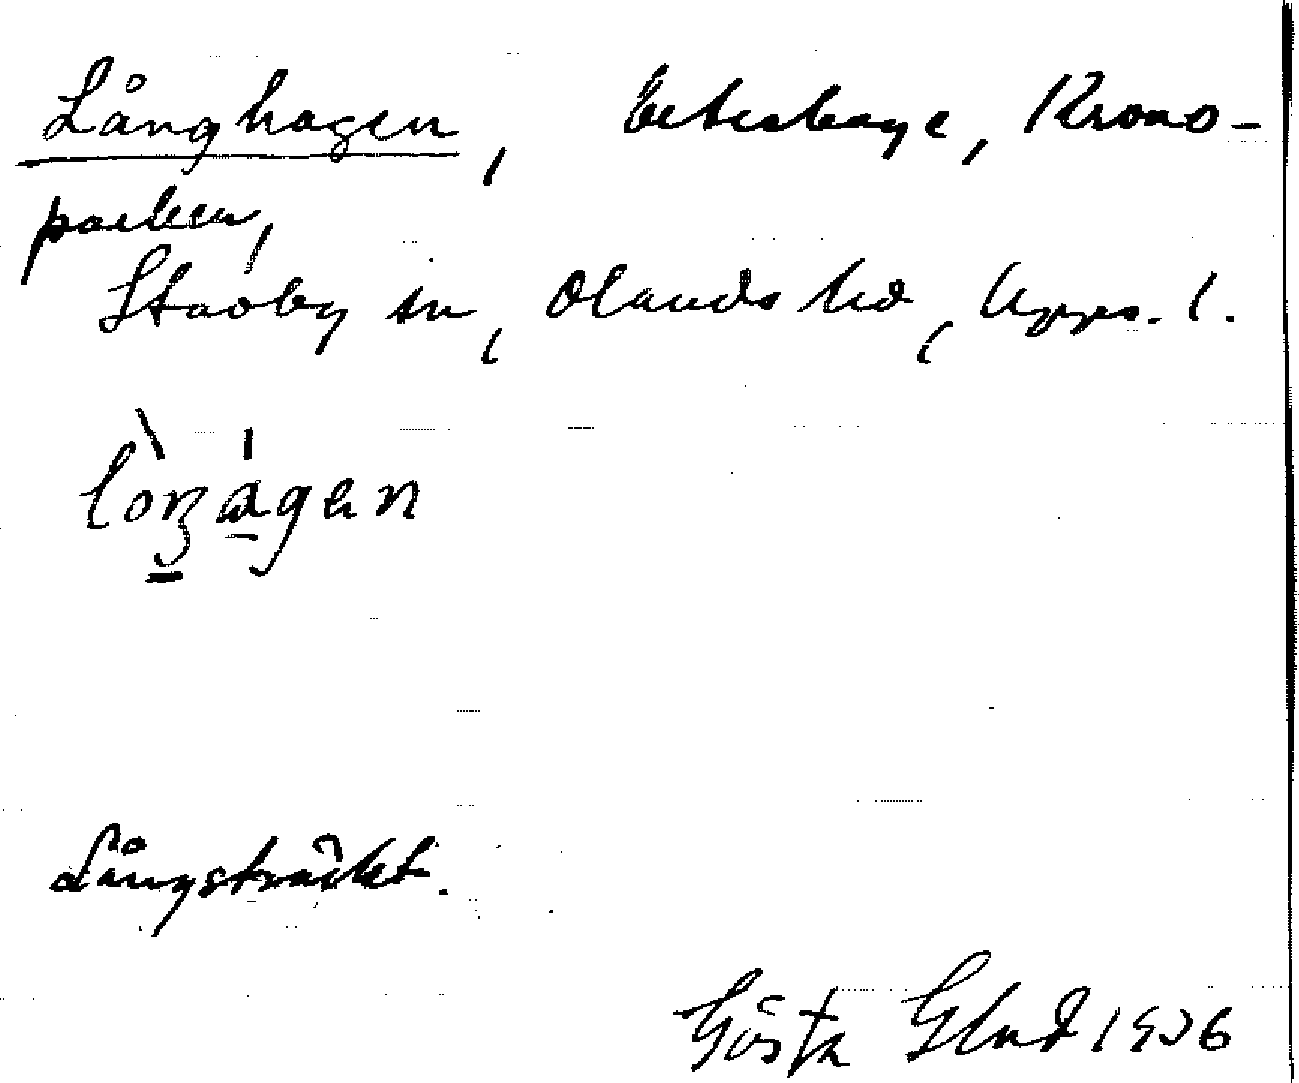 Långhagen, beteshage, Krono-
parken,
Stavby sn, Olands hd, Upps. l.
Långsträckt.
Gösta 1936